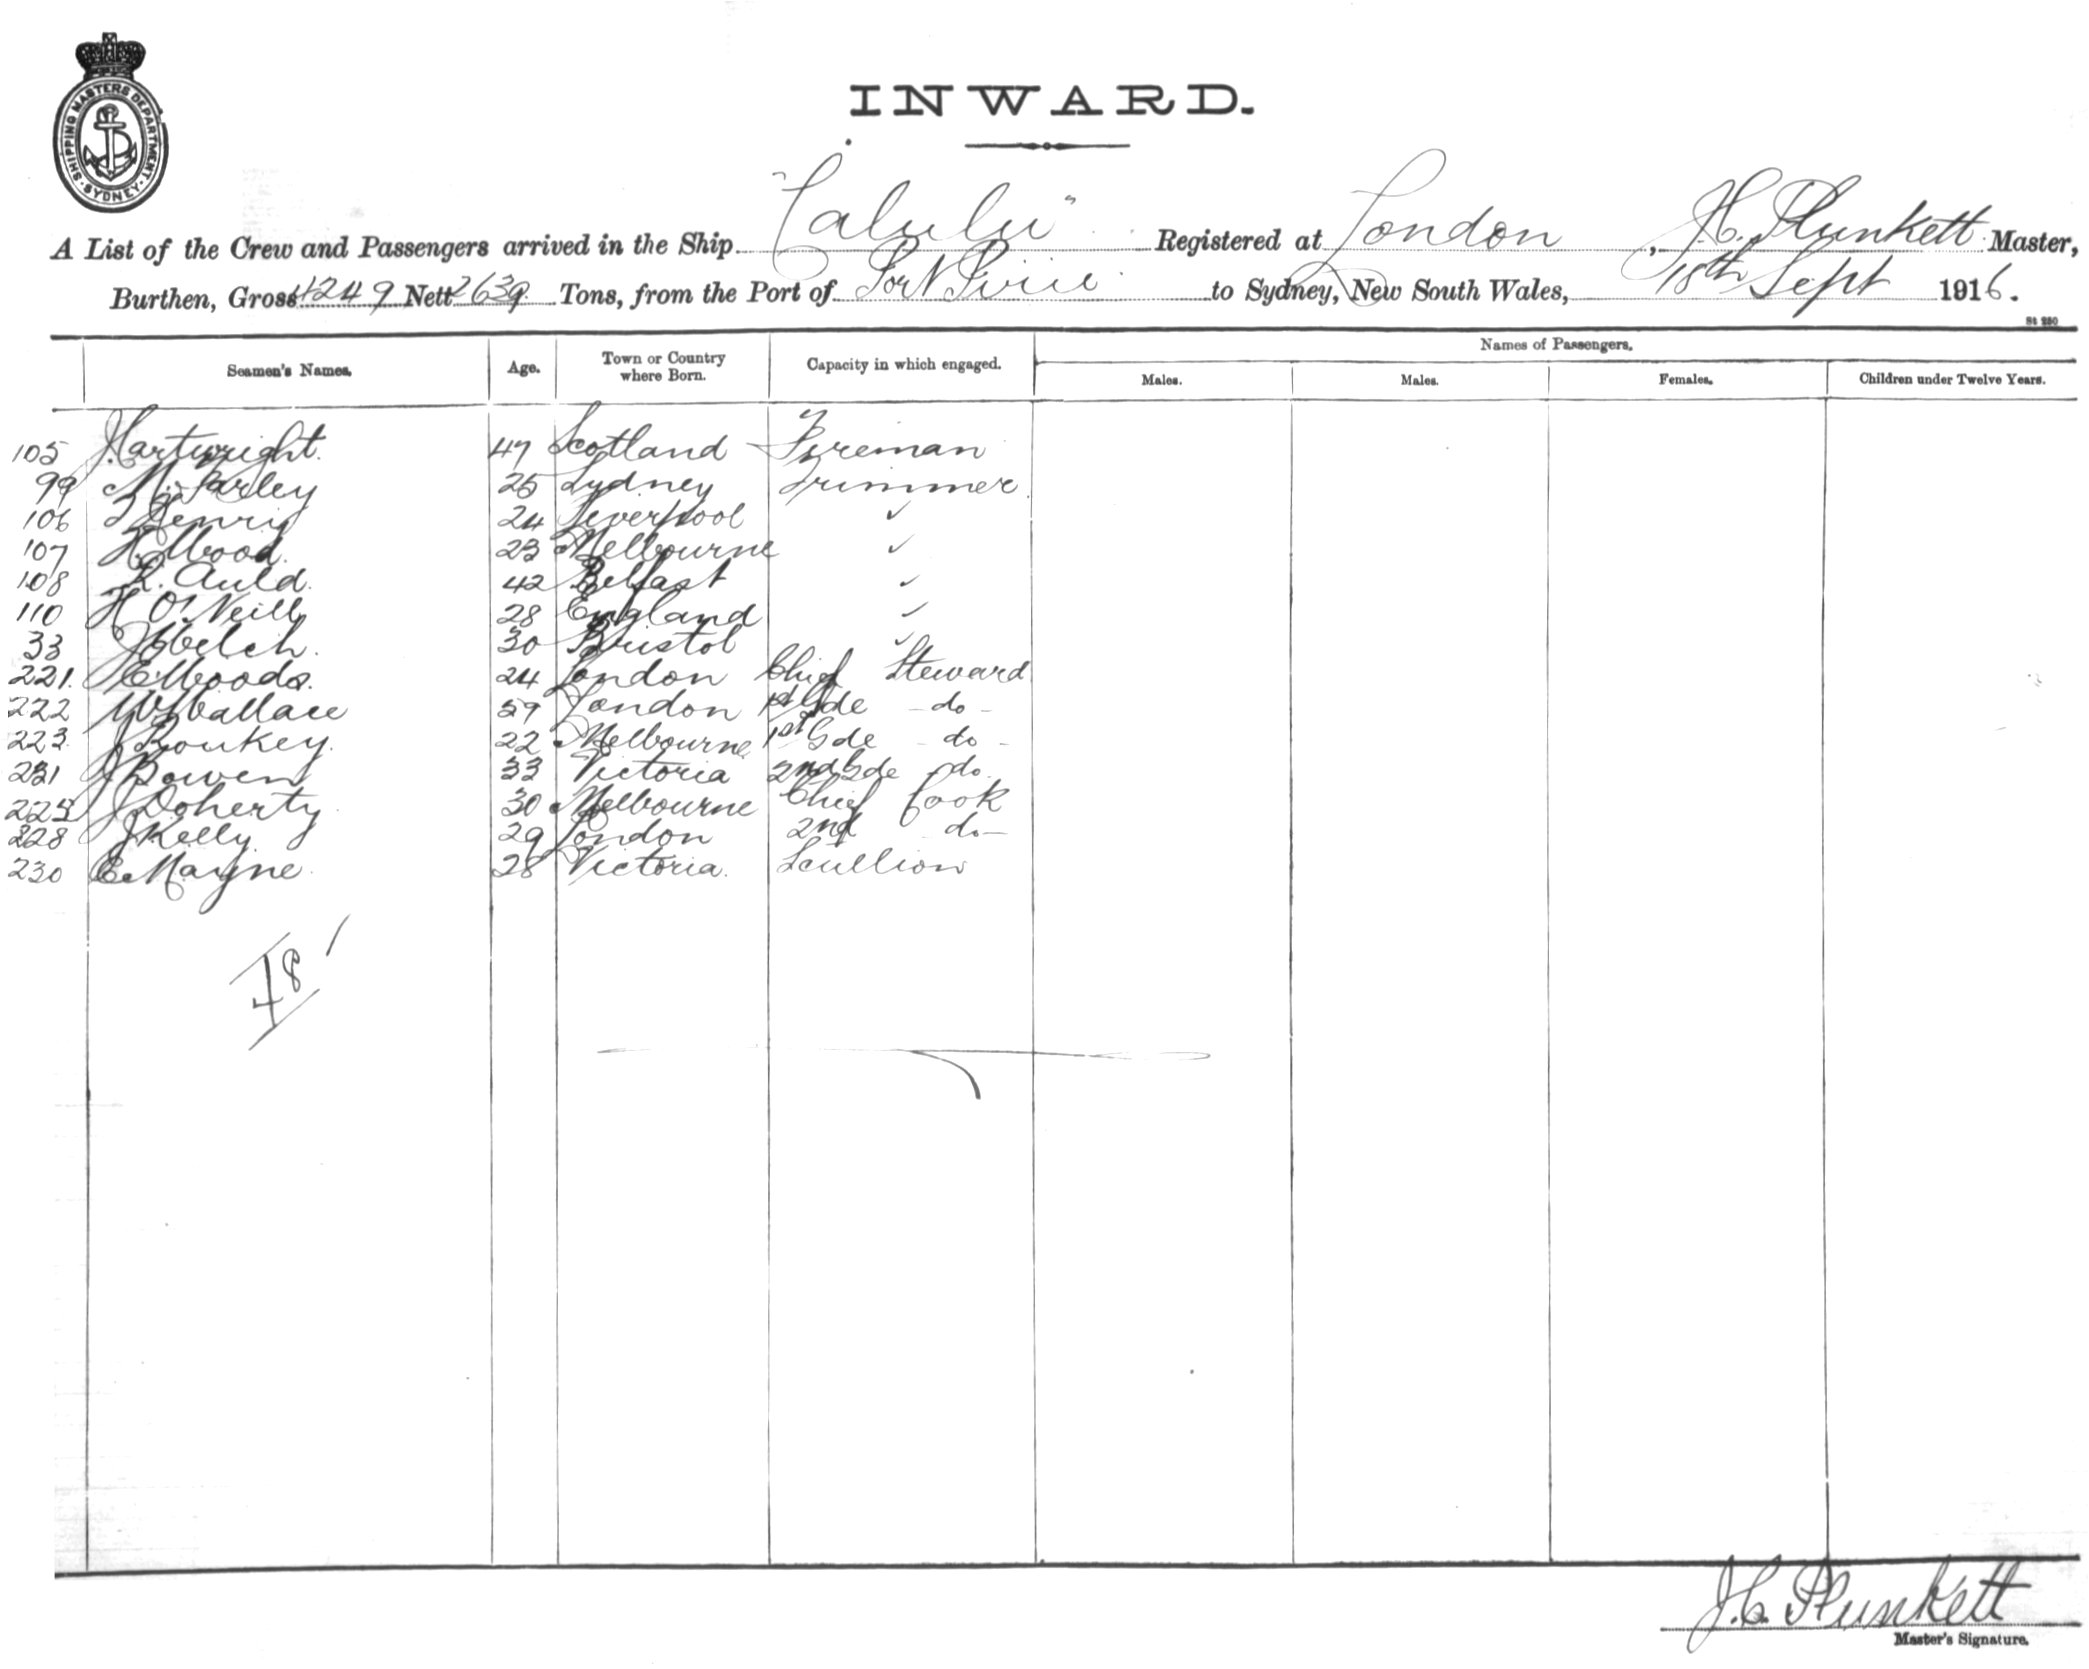 SHIPPING MASTERS DEPARTMENT. SYDNEY.
INWARD.
A List of the Crew and Passengers arrived in the Ship "Calulu" Registered at London, J.C. Plunkett Master,
Burthen, Gross 4249 Nett 2639 Tons, from the Port of Port Pirie to Sydney, New South Wales, 18th Sept 1916.
St 250
Seamen's Names. Age. Town or Country where Born. Capacity in which engaged. Names of Passengers.
Males. Males. Females. Children under Twelve Years.
105 Hartwright. 47 Scotland Fireman
99 M. Farley 25 Sydney Trimmer
106 Henry 24 Liverpool ✓
107 H Wood. 23 Melbourne ✓
108 R. Auld. 42 Belfast ✓
110 H O'Neill 28 England ✓
33 J Welch. 30 Bristol ✓
221. E Woods. 24 London Chief Steward
222 W Wallace 59 London 1st Gde - do -
223. J Roukey. 22 Melbourne 1st Gde - do -
231 J Bowen 33 Victoria 2nd Gde do
J Doherty 30 Melbourne Chief Cook
228 J Kelly. 29 London 2nd - do -
230 E. Mayne. 28 Victoria. Scullion
48
J.C. Plunkett
Master's Signature.